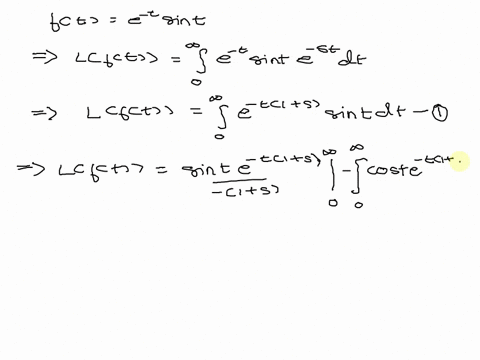 f(t) = e^{-t} sint
⇒ L(f(t)) = ∫_0^∞ e^{-t} sint e^{-st} dt
⇒ L(f(t)) = ∫_0^∞ e^{-t(1+s)} sint dt - ①
⇒ L(f(t)) = sint e^{-t(1+s)} / -(1+s) |_0^∞ - ∫_0^∞ cost e^{-t(1+